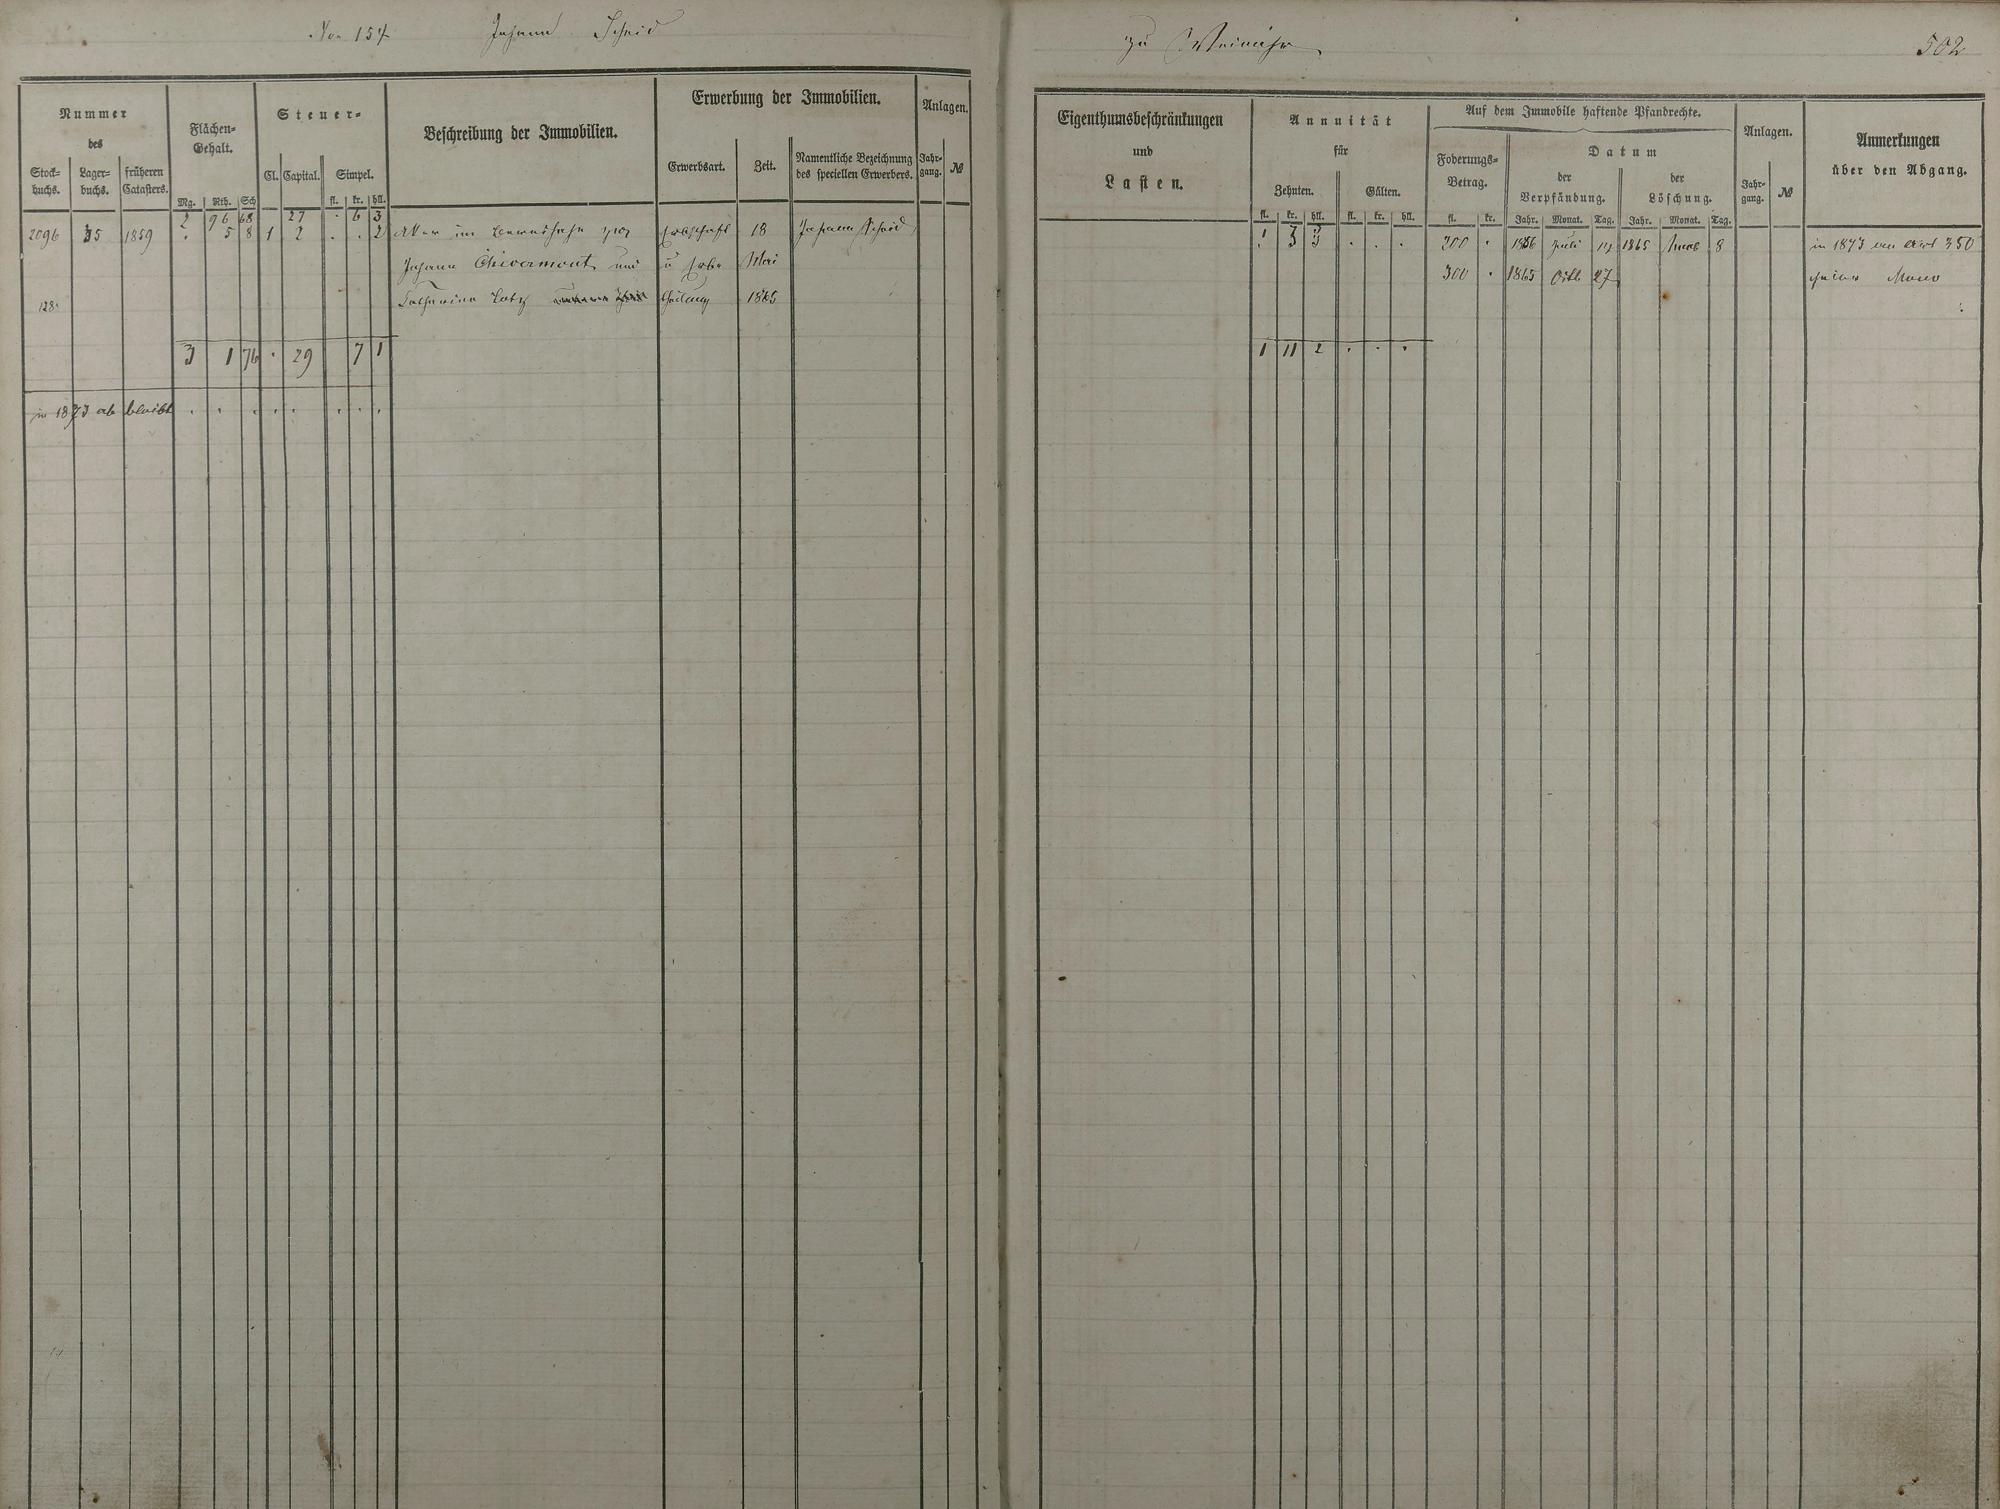 No 154 Johann Scheid
zu Weinähr 502
Nummer
des
Stock-
buchs.
Lager-
buchs.
früheren
Catasters.
Flächen-
Gehalt.
Mg. Rth. Sch
Steuer-
Cl. Capital. Simpel.
fl. kr. hll.
Beschreibung der Immobilien.
Erwerbung der Immobilien.
Erwerbsart. Zeit.
Namentliche Bezeichnung
des speciellen Erwerbers.
Anlagen.
Jahr-
gang. №
Eigenthumsbeschränkungen
und
Lasten.
Annuität
für
Zehnten. Gülten.
fl. kr. hll. fl. kr. hll.
Auf dem Immobile haftende Pfandrechte.
Foderungs-
Betrag.
fl. kr.
Datum
der
Verpfändung.
der
Löschung.
Jahr. Monat. Tag. Jahr. Monat. Tag.
Anlagen.
Jahr-
gang. №
Anmerkungen
über den Abgang.
2 96 68 27 . 6 3
2096 35 1859 . 5 8 1 2 . . 2 Acker im
Erbschaft 18 Johann Scheid
Johann Chivermont und u Erb- Mai
Catharina Lotz theilung 1865
128
3 1 76 . 29 7 1
in 1873 ab bleibt . . . . . . . .
. . . 200 . 1856 Juli 1865 8
300 . 1865 Octb 27
1 11 2 . . .
in 1873 an Art 350